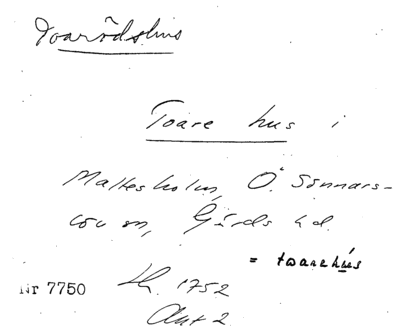 Tvarödshus
Toare hus i
Maltesholm, Ö. Sönnars-
löv sn, Gärds hd.
= toarehús
Nr 7750
1752
Akt 2